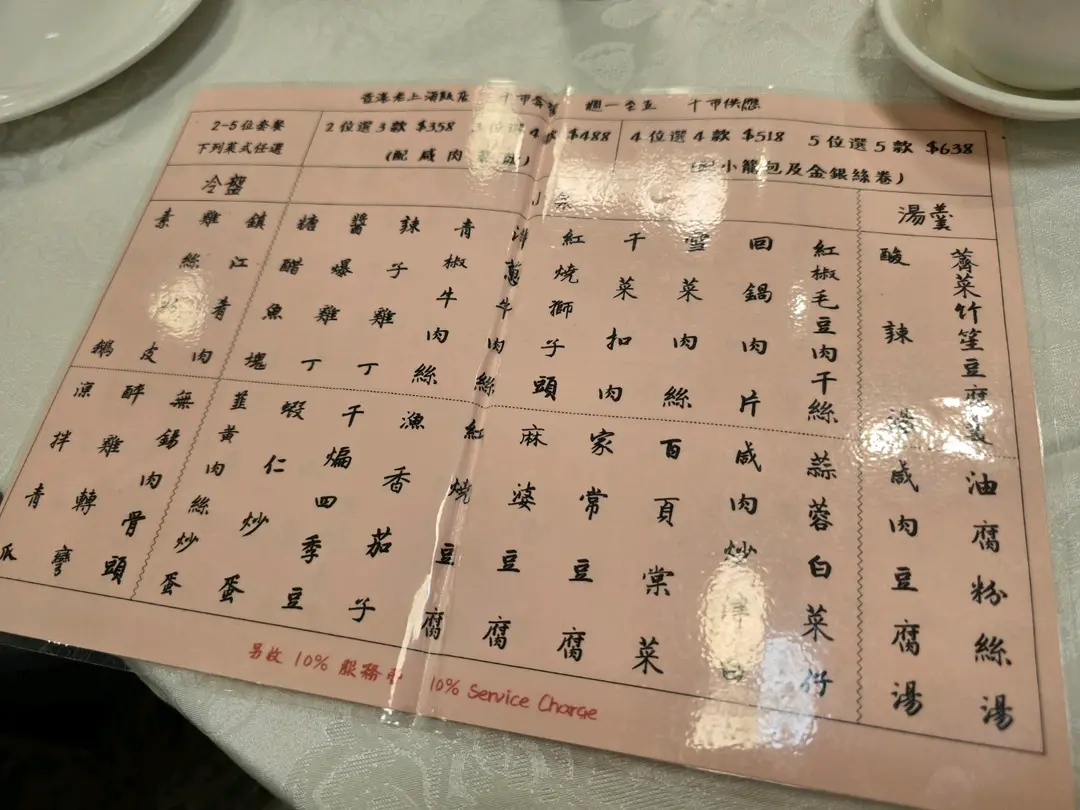 香港老上海飯店 午市套餐 週一至五 午市供應
2-5位套餐
下列菜式任選
2位選3款 $358 3位選4款 $488
(配咸肉菜飯)
4位選4款 $518 5位選5款 $638
(配小籠包及金銀絲卷)
冷盤
小菜
湯羹
素鵝
雞絲粉皮
鎮江肴肉
糖醋魚塊
醬爆雞丁
辣子雞丁
青椒牛肉絲
洋蔥牛肉絲
紅燒獅子頭
干菜扣肉
雪菜肉絲
回鍋肉片
紅椒毛豆肉干絲
酸辣湯
薺菜竹笙豆腐羹
涼拌青瓜
醉雞轉彎
無錫肉骨頭
韮黃肉絲炒蛋
蝦仁炒蛋
干煸四季豆
漁香茄子
紅燒豆腐
麻婆豆腐
家常豆腐
百頁棠菜
咸肉炒津白
蒜蓉白菜仔
咸肉豆腐湯
油腐粉絲湯
另收 10% 服務費 10% Service Charge